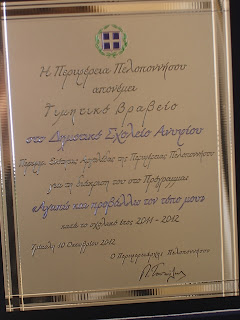 Η Περιφέρεια Πελοποννήσου
απονέμει
Τιμητικό Βραβείο
στο Δημοτικό Σχολείο
Περιφερ. Ενότητας της Περιφέρειας Πελοποννήσου
για τη διάκρισή του στο Πρόγραμμα:
«Αγαπώ και προβάλλω τον τόπο μου»
κατά το σχολικό έτος 2011 - 2012
Τρίπολη 10 Οκτωβρίου 2012
Ο Περιφερειάρχης Πελοποννήσου